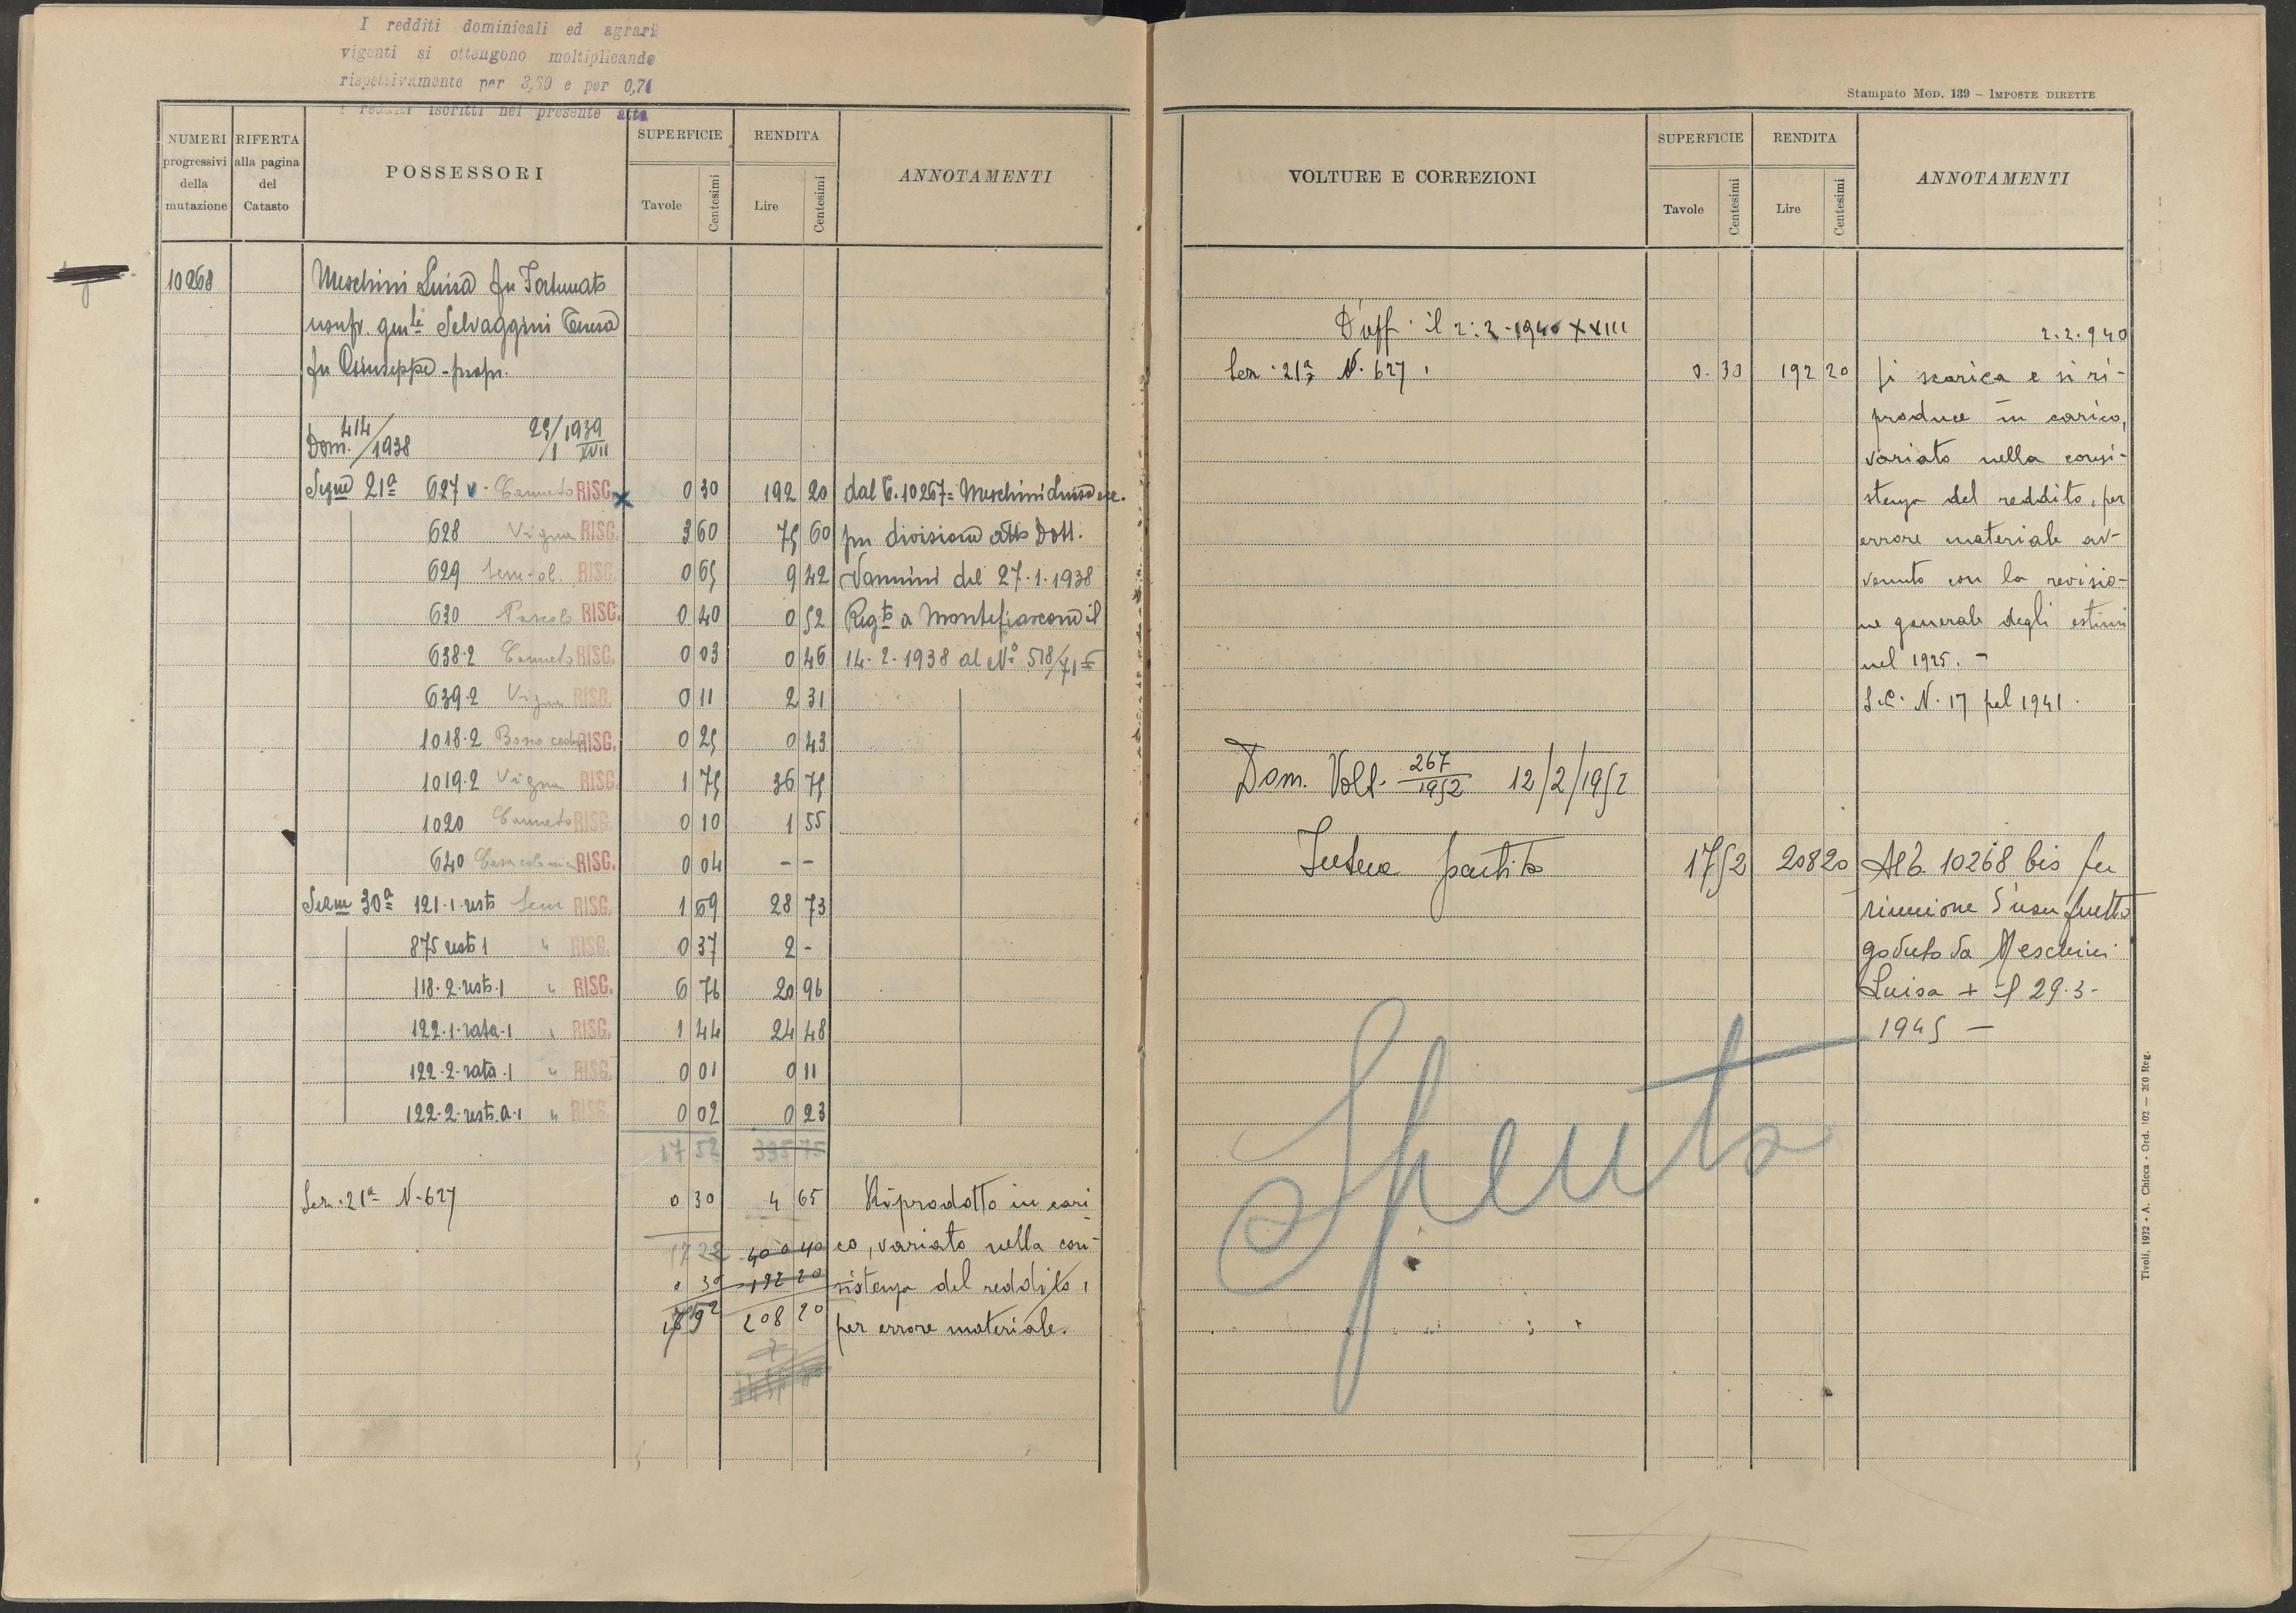 I redditi dominicali ed agrari
vigenti si ottengono moltiplicando
rispettivamente per 3,60 e per 0,71
i redditi iscritti nel presente atto
NUMERI progressivi della mutazione
RIFERTA alla pagina del Catasto
POSSESSORI
SUPERFICIE
Tavole Centesimi
RENDITA
Lire Centesimi
ANNOTAMENTI
10268 Meschini Luisa fu Fortunato
usufr. gen.le Selvaggini Teresa
fu Giuseppe - propr.
Dom. 414/1938 25/1 1939 XVII
Segue 21ª 627 v. Canneto RISC. x 0 30 192 20 dal C. 10267= Meschini Luisa ecc.
628 Vigna RISC. 3 60 75 60 per divisione atto Dott.
629 Sem. ol. RISC. 0 65 9 42 Vannini del 27.1.1938
630 Pascolo RISC. 0 40 0 52 Reg.to a Montefiascone il
638.2 Canneto RISC. 0 03 0 46 14.2.1938 al N.º 518/71
639.2 Vigna RISC. 0 11 2 31
1018.2 Bosco ceduo RISC. 0 25 0 43
1019.2 Vigna RISC. 1 75 36 75
1020 Canneto RISC. 0 10 1 55
640 Casa colonica RISC. 0 04 - -
Sezne 30ª 121.1.resto Sem RISC. 1 69 28 73
875 resto 1 " RISC. 0 37 2 -
118.2.resto.1 " RISC. 6 76 20 96
122.1.rata.1 " RISC. 1 44 24 48
122.2.rata.1 " RISC. 0 01 0 11
122.2.resto.a.1 " RISC. 0 02 0 23
17 52 395 75
Sez. 21ª N. 627 0 30 4 65 Riprodotto in cari
17 22 400 40 co, variato nella con-
0 30 192 20 sistenza del reddito,
17 52 208 20 per errore materiale.
Stampato MOD. 139 – IMPOSTE DIRETTE
VOLTURE E CORREZIONI
SUPERFICIE
Tavole Centesimi
RENDITA
Lire Centesimi
ANNOTAMENTI
D'uff. il 2.2.1940 XVIII 2.2.940
Sez. 21ª N. 627 0.30 192 20 Si scarica e si ri-
produce in carico,
variato nella consi-
stenza del reddito, per
errore materiale av-
venuto con la revisio-
ne generale degli estimi
nel 1925. -
S.C. N. 17 pel 1941.
Dom. Volt. 267/1952 12/2/1952
Intera partita 17 52 208 20 Al C. 10268 bis per
riunione d'usufrutto
goduto da Meschini
Luisa + il 29.3.
1945 —
Spenta
Tivoli, 1932 - A. Chicca - Ord. 102 — 200 Reg.